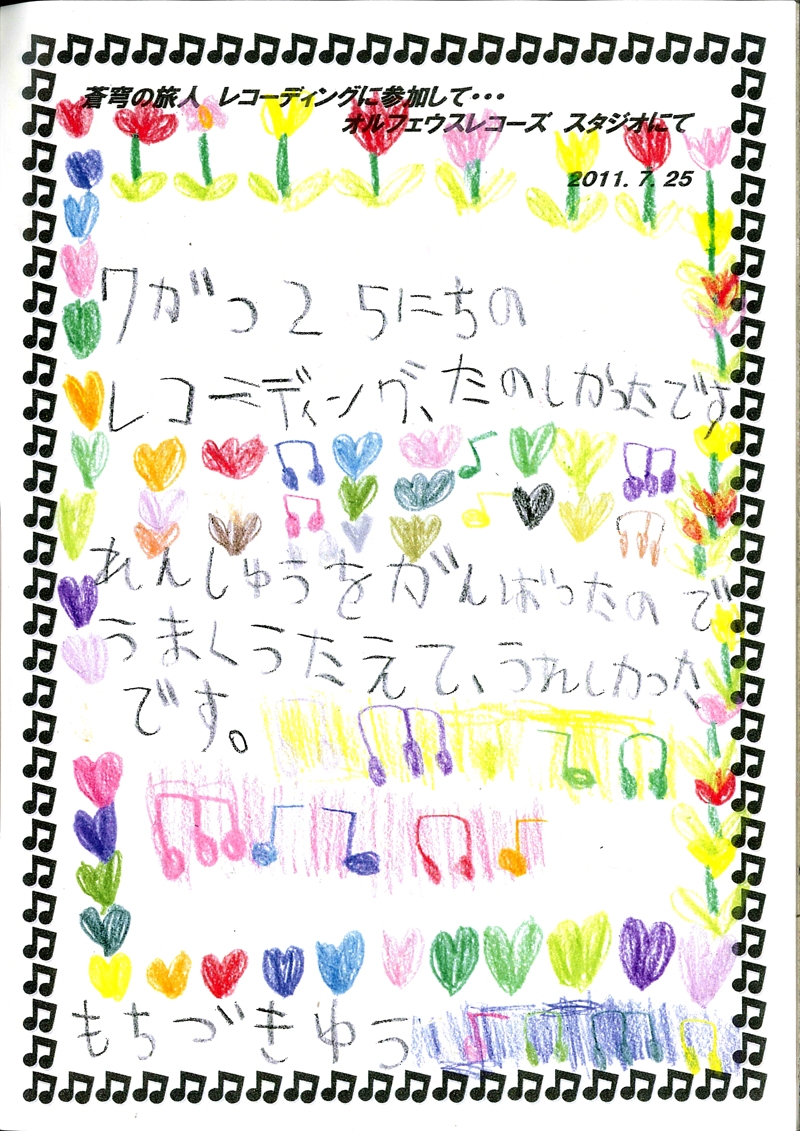 蒼穹の旅人　レコーディングに参加して・・・
オルフェウスレコーズ　スタジオにて
2011. 7. 25
7がつ25にちの
レコーディング、たのしかったです
れんしゅうをがんばったので
うまくうたえて、うれしかった
です。
もちづきゆう